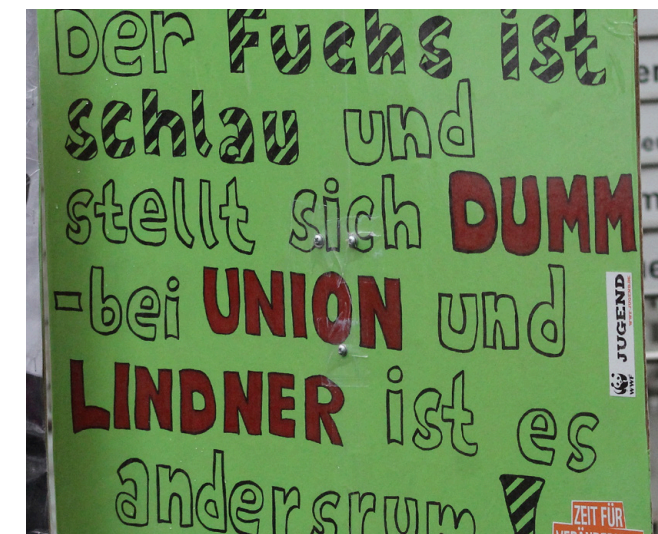 Der Fuchs ist
schlau und
stellt sich DUMM
-bei UNION und
LINDNER ist es
andersrum!
JUGEND
WWF
ZEIT FÜR